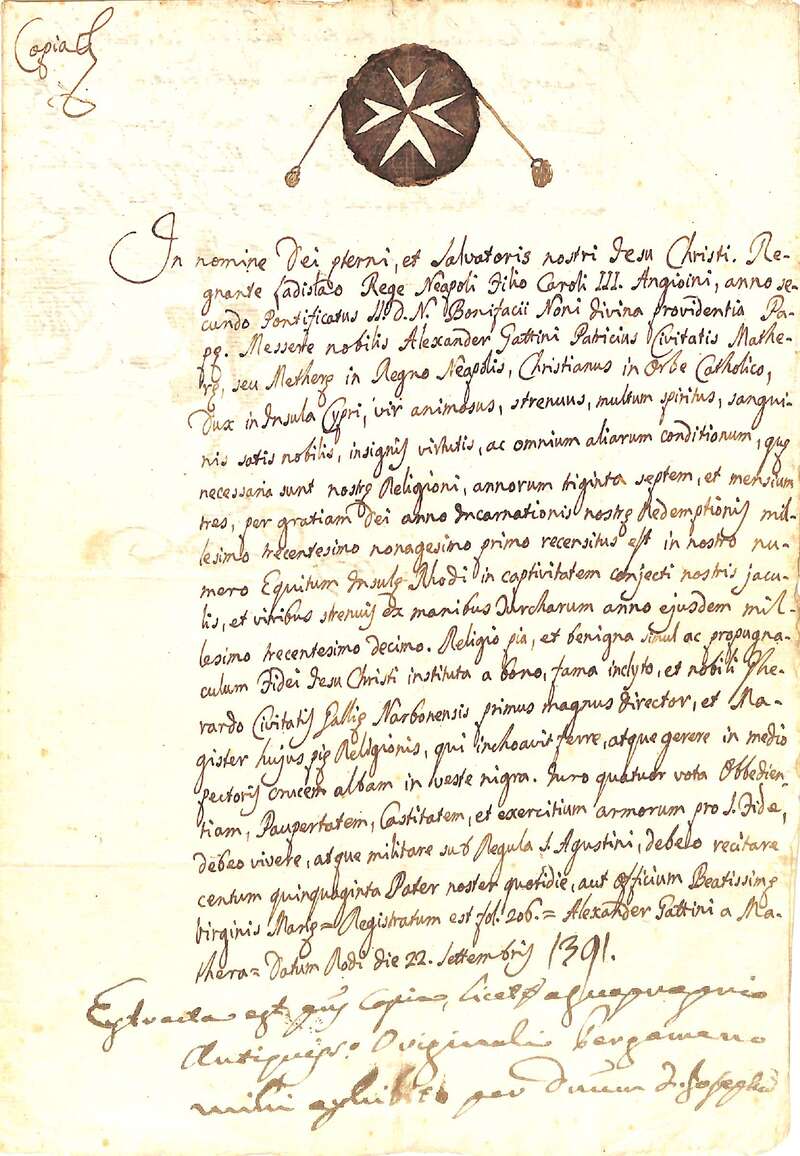 Copia
In nomine Dei ęterni, et Salvatoris nostri Jesu Christi. Re-
gnante Ladislao Rege Neapoli Filio Caroli III. Angioini, anno se-
cundo Pontificatus SS. D. N. Bonifacii Noni divina providentia Pa-
pę. Messere nobilis Alexander Gattini Patricius Civitatis Mathe-
rę, seu Metherę in Regno Neapolis, Christianus in Orbe Catholico,
Dux in Insula Cypri, vir animosus, strenuus, multum spiritus, sangui-
nis satis nobilis, insignis virtutis, ac omnium aliarum conditionum, quę
necessaria sunt nostrę Religioni, annorum triginta septem, et mensium
tres, per gratiam Dei anno Incarnationis nostrę Redemptionis mil-
lesimo trecentesimo nonagesimo primo recensitus est in nostro nu-
mero Equitum Insulę Rhodi in captivitatem conjecti nostris jacu-
lis, et viribus strenuis ex manibus Turcharum anno ejusdem mil-
lesimo trecentesimo decimo. Religio pia, et benigna simul ac propugna-
culum Fidei Jesu Christi instituta a bono, fama inclyto, et nobili Ghe-
rardo Civitatis Gallię Narbonensis primus magnus director, et Ma-
gister hujus pię Religionis, qui inchoavit ferre, atque gerere in medio
pectoris crucem albam in veste nigra. Juro quatuor vota Obbedien-
tiam, Paupertatem, Castitatem, et exercitium armorum pro S. Fide,
debeo vivere, atque militare sub Regula S. Agustini, debeo recitare
centum quinquaginta Pater noster quotidie, aut Officium Beatissimę
Virginis Marię = Registratum est fol. 206. = Alexander Gattini a Ma-
thera = Datum Rodi die 22. Settembris 1391.
Extracta est Copia, licet
Originali Pergameno
mihi exhibito per D. Joseph